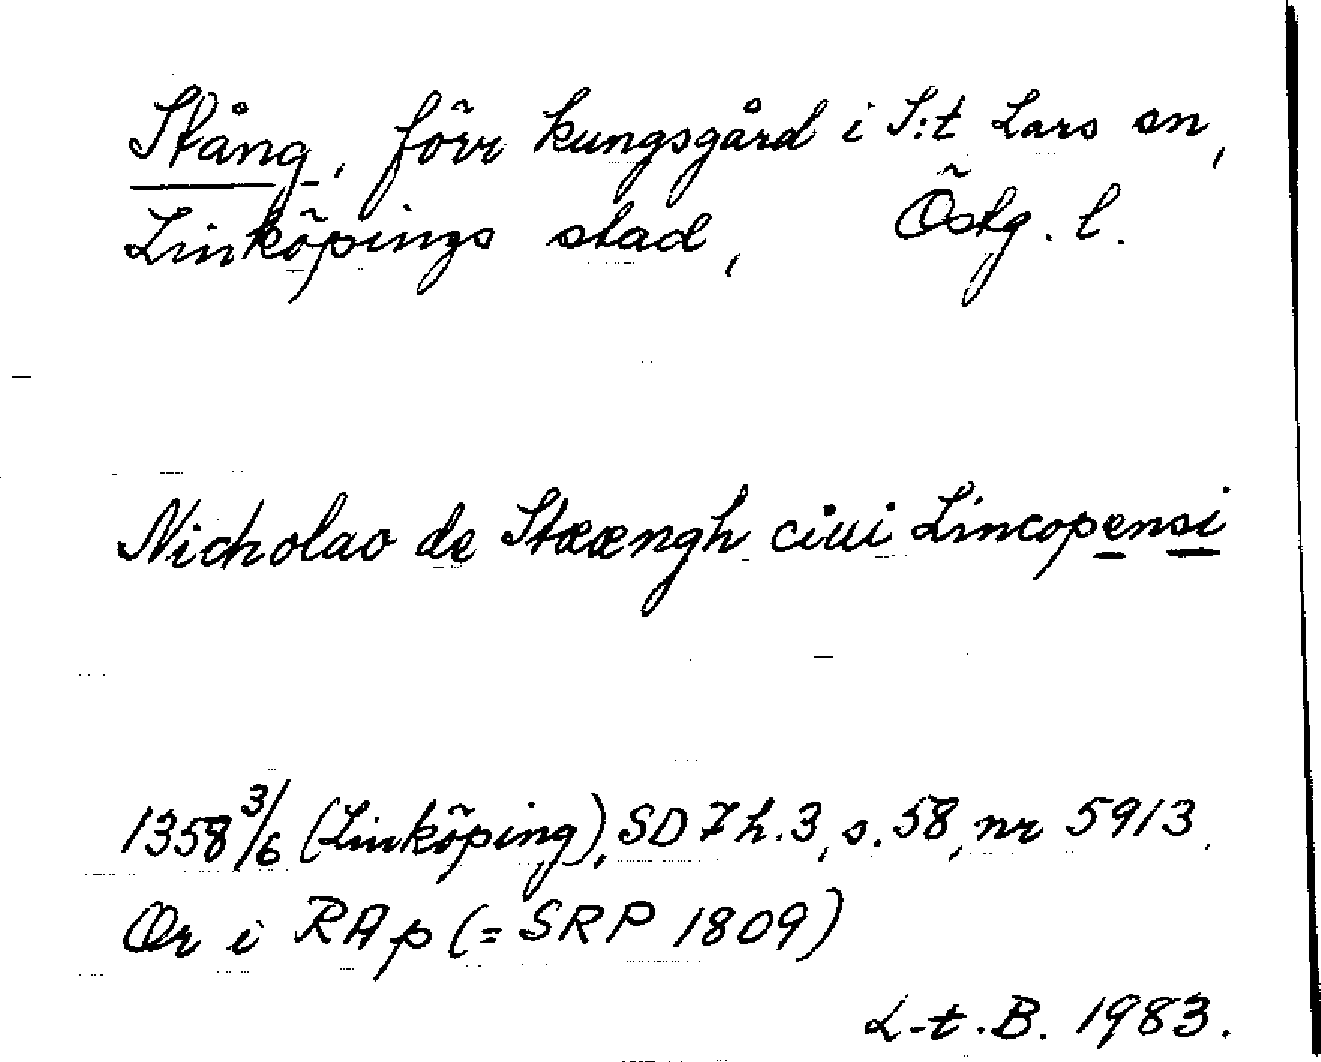 Stång, förr kungsgård i S:t Lars sn,
Linköpings stad, Östg. l.
Nicholao de Stææængh ciui Lincopensi
1358 3/6 (Linköping), SD 7 h. 3, s. 58, nr 5913.
Or i RAp (= SRP 1809)
L-t. B. 1983.